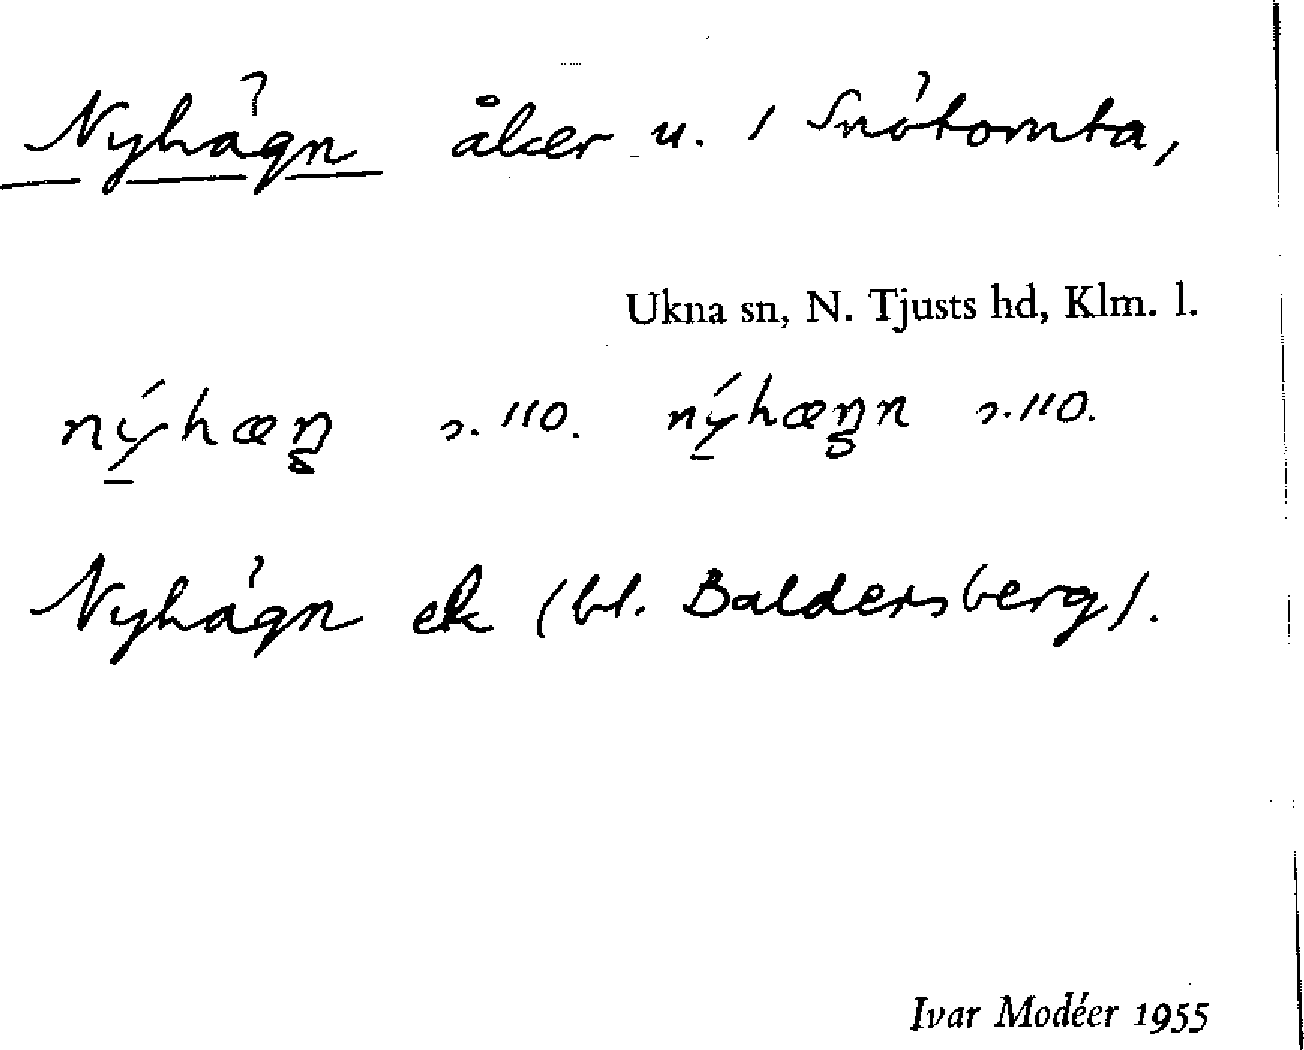 Nyhägn åker u. 1 Snötomta,
Ukna sn, N. Tjusts hd, Klm. l.
nýhæŋ s. 110. nýhæŋn s. 110.
Nyhägn ek (bl. Baldersberg).
Ivar Modéer 1955